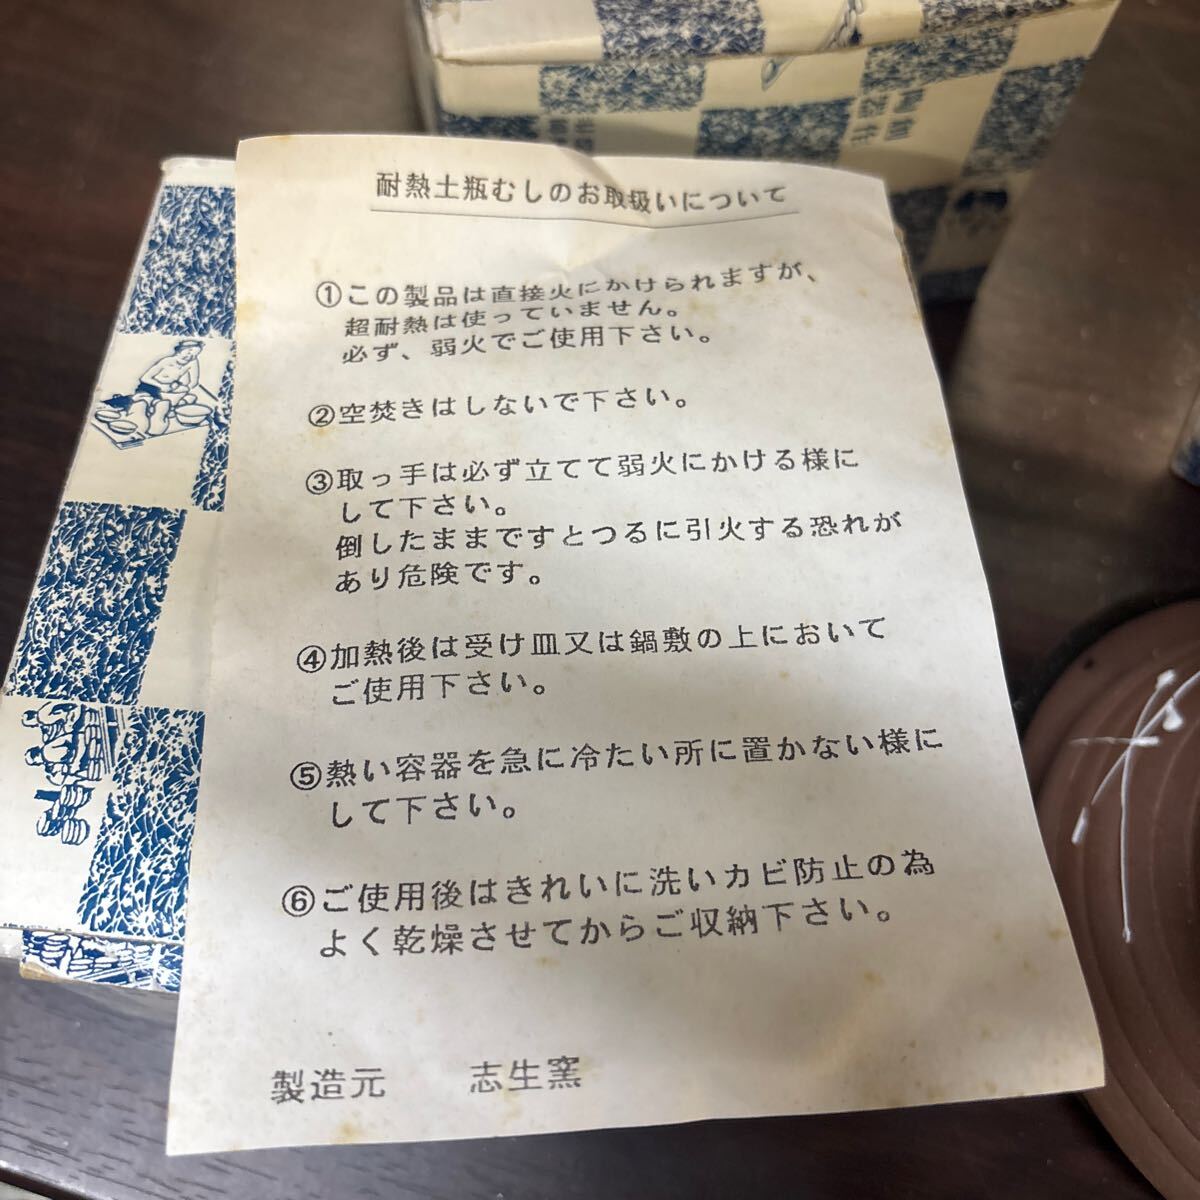 耐熱土瓶むしのお取扱いについて
①この製品は直接火にかけられますが、
超耐熱は使っていません。
必ず、弱火でご使用下さい。
②空焚きはしないで下さい。
③取っ手は必ず立てて弱火にかける様に
して下さい。
倒したままですとつるに引火する恐れが
あり危険です。
④加熱後は受け皿又は鍋敷の上において
ご使用下さい。
⑤熱い容器を急に冷たい所に置かない様に
して下さい。
⑥ご使用後はきれいに洗いカビ防止の為
よく乾燥させてからご収納下さい。
製造元 志生窯